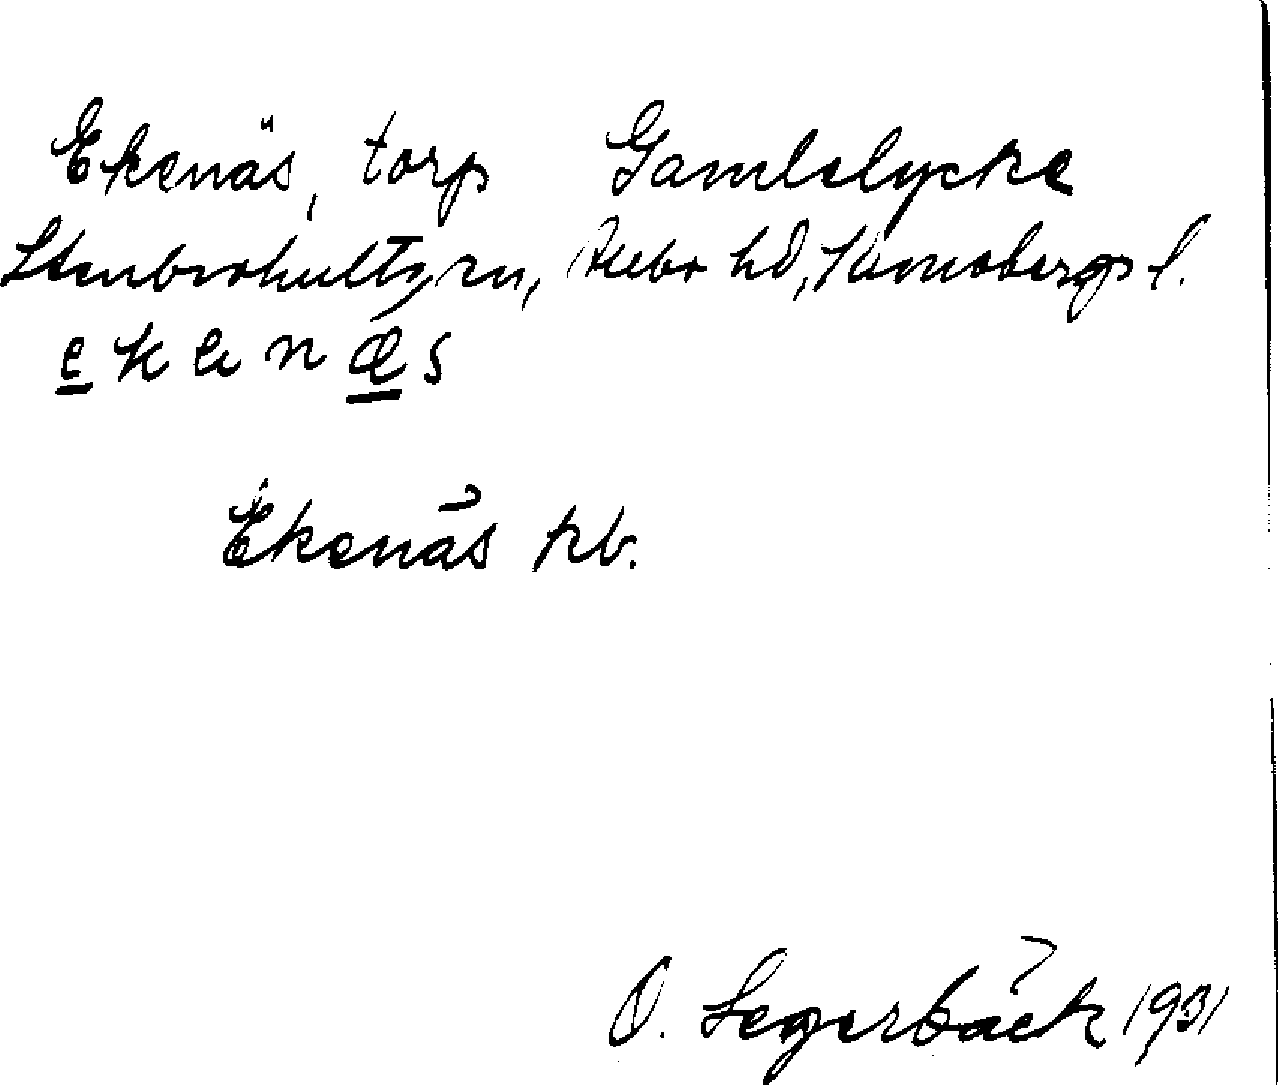 Ekenäs, torp Gamlelycke
Stenbrohults sn, Allbo hd, Kronobergs l.
e k e n æ s
Ekenäs kb.
O. Segerbäck 1931